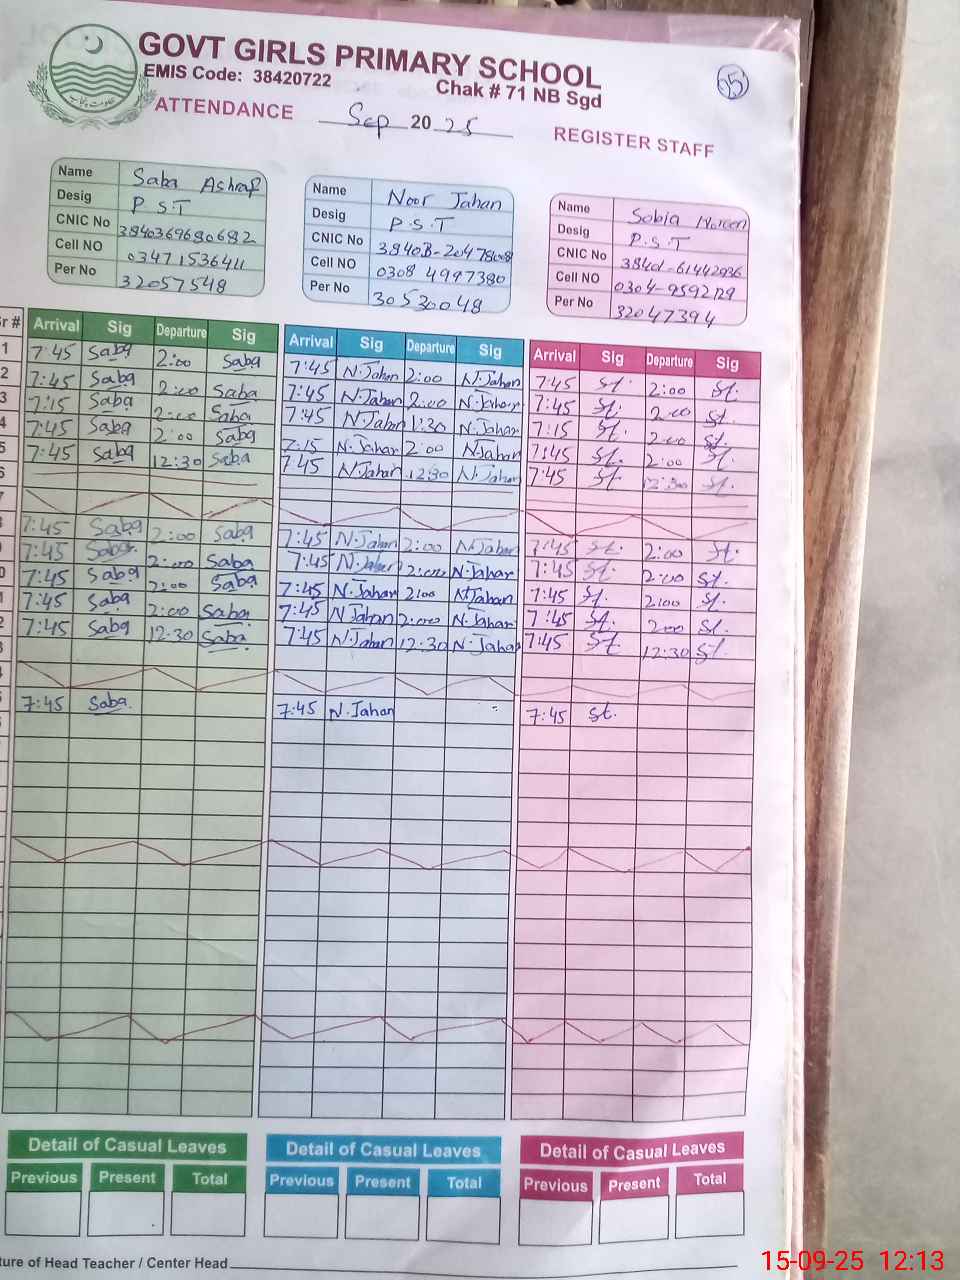 GOVT GIRLS PRIMARY SCHOOL
EMIS Code: 38420722
Chak # 71 NB Sgd
ATTENDANCE Sep 2025 REGISTER STAFF
Name Saba Ashraf
Desig P.S.T
CNIC No 3840369680682
Cell NO 03471536411
Per No 32057548
Name Noor Jahan
Desig P.S.T
CNIC No
Cell NO 0308 4997380
Per No 30530048
Name Sobia Noreen
Desig P.S.T
CNIC No
Cell NO
Per No 32047394
Sr # Arrival Sig Departure Sig Arrival Sig Departure Sig Arrival Sig Departure Sig
1 7:45 Saba 2:00 Saba 7:45 N.Jahan 2:00 N.Jahan 7:45 St. 2:00 St.
2 7:45 Saba 2:00 Saba 7:45 N.Jahan 2:00 N.Jahan 7:45 St. 2:00 St.
3 7:15 Saba 2:00 Saba 7:45 N.Jahan 1:30 N.Jahan 7:15 St. 2:00 St.
4 7:45 Saba 2:00 Saba 7:15 N.Jahan 2:00 N.Jahan 7:45 St. 2:00 St.
5 7:45 Saba 12:30 Saba 7:45 N.Jahan 12:30 N.Jahan 7:45 St 12:30 St.
6
7:45 Saba 2:00 Saba 7:45 N.Jahan 2:00 N.Jahan 7:45 St. 2:00 St.
7:45 Saba 2:00 Saba 7:45 N.Jahan 2:00 N.Jahan 7:45 St. 2:00 St.
7:45 Saba 2:00 Saba 7:45 N.Jahan 2:00 N.Jahan 7:45 St. 2:00 St.
7:45 Saba 2:00 Saba 7:45 N.Jahan 2:00 N.Jahan 7:45 St. 2:00 St.
7:45 Saba 12:30 Saba 7:45 N.Jahan 12:30 N.Jahan 7:45 St 12:30 St.
7:45 Saba. 7:45 N.Jahan 7:45 St.
Detail of Casual Leaves Detail of Casual Leaves Detail of Casual Leaves
Previous Present Total Previous Present Total Previous Present Total
ture of Head Teacher / Center Head
15-09-25 12:13